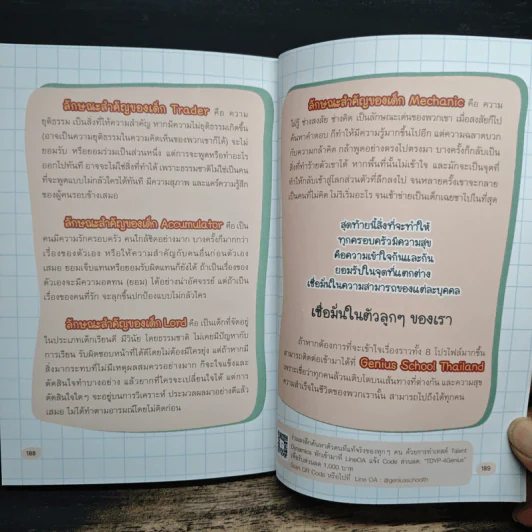 ลักษณะสำคัญของเด็ก Trader คือ ความ
ยุติธรรม เป็นสิ่งที่ให้ความสำคัญ หากมีความไม่ยุติธรรมเกิดขึ้น
(อาจเป็นความยุติธรรมในความคิดเห็นของพวกเขาก็ได้) จะไม่
ยอมรับ หรือยอมร่วมเป็นส่วนหนึ่ง แต่การจะพูดหรือทำอะไร
ออกไปทันที อาจจะไม่ใช่สิ่งที่ทำได้ เพราะธรรมชาติไม่ใช่เป็นคน
ที่จะพูดแบบไม่กลัวใครได้ทันที มีความสุภาพ และแคร์ความรู้สึก
ของผู้คนรอบข้างเสมอ
ลักษณะสำคัญของเด็ก Accumulator คือ เป็น
คนมีความรักครอบครัว คนใกล้ชิดอย่างมาก บางครั้งก็มากกว่า
เรื่องของตัวเอง หรือให้ความสำคัญกับคนอื่นก่อนตัวเอง
เสมอ ยอมเจ็บแทนหรือยอมรับผิดแทนก็ยังได้ ถ้าเป็นเรื่องของ
ตัวเองจะมีความอดทน (ยอม) ได้อย่างน่าอัศจรรย์ แต่ถ้าเป็น
เรื่องของคนที่รัก จะลุกขึ้นปกป้องแบบไม่กลัวใคร
ลักษณะสำคัญของเด็ก Lord คือ เป็นเด็กที่จัดอยู่
ในประเภทเด็กเรียนดี มีวินัย โดยธรรมชาติ ไม่เคยมีปัญหากับ
การเรียน รับผิดชอบหน้าที่ได้ดีโดยไม่ต้องมีใครยุ่ง แต่ถ้าหากมี
สิ่งมากระทบที่ไม่มีเหตุผลสมควรอย่างมาก ก็จะใจแข็งและ
ตัดสินใจทำบางอย่าง แล้วยากที่ใครจะเปลี่ยนใจได้ แต่การ
ตัดสินใจใดๆ จะอยู่บนการวิเคราะห์ ประมวลผลมาอย่างดีแล้ว
เสมอ ไม่ได้ทำตามอารมณ์โดยไม่คิดก่อน
188
ลักษณะสำคัญของเด็ก Mechanic คือ ความ
ใฝ่รู้ ช่างสงสัย ช่างคิด เป็นลักษณะเด่นของพวกเขา เมื่อสงสัยก็ไป
ค้นหาคำตอบ ก็ทำให้มีความรู้มากขึ้นไปอีก แต่ความฉลาดบวก
กับความกล้าคิด กล้าพูดอย่างตรงไปตรงมา บางครั้งก็กลับเป็น
สิ่งที่ทำร้ายตัวเขาได้ หากพื้นที่นั้นไม่เข้าใจ และมักจะเป็นจุดที่
ทำให้กลับเข้าสู่โลกส่วนตัวที่ลึกลงไป จนหลายครั้งเขาจะกลาย
เป็นคนที่ไม่คิด ไม่ริเริ่มอะไร จนเข้าข่ายเป็นเด็กเฉยชาไปในที่สุด
สุดท้ายนี้สิ่งที่จะทำให้
ทุกครอบครัวมีความสุข
คือความเข้าใจกันและกัน
ยอมรับในจุดที่แตกต่าง
เชื่อมั่นในความสามารถของแต่ละบุคคล
เชื่อมั่นในตัวลูกๆ ของเรา
ถ้าหากต้องการที่จะเข้าใจเรื่องราวทั้ง 8 โปรไฟล์มากขึ้น
สามารถติดต่อเข้ามาได้ที่ Genius School Thailand
เพราะเชื่อว่าทุกคนล้วนเติบโตบนเส้นทางที่ต่างกัน และความสุข
ความสำเร็จในชีวิตของพวกเรานั้น สามารถไปถึงได้ทุกคน
ร่วมลงลึกค้นหาตัวตนที่แท้จริงของทุกๆ คน ด้วยการทำเทสต์ Talent
Dynamics ทักเข้ามาที่ LineOA แจ้ง Code ส่วนลด "TDYP-4Genius"
เพื่อรับส่วนลด 1,000 บาท
Scan QR Code หรือไปที่ Line OA : @geniusschoolth
189